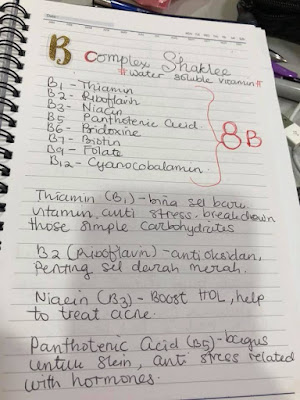 B Complex Shaklee
#water soluble vitamin#
B1 - Thiamin
B2 - Riboflavin
B3 - Niacin
B5 - Panthotenic Acid
B6 - Bridoxine
B7 - Biotin
B9 - Folate
B12 - Cyanocobalamin
8B
Thiamin (B1) - bina sel baru
vitamin, anti stress. breakdown
those simple carbohydrates
B2 (Riboflavin) - antioksidan,
Penting sel darah merah.
Niacin (B3) - Boost HDL, help
to treat acne.
Panthotenic Acid (B5) - bagus
untuk skin, anti stress related
with hormones.